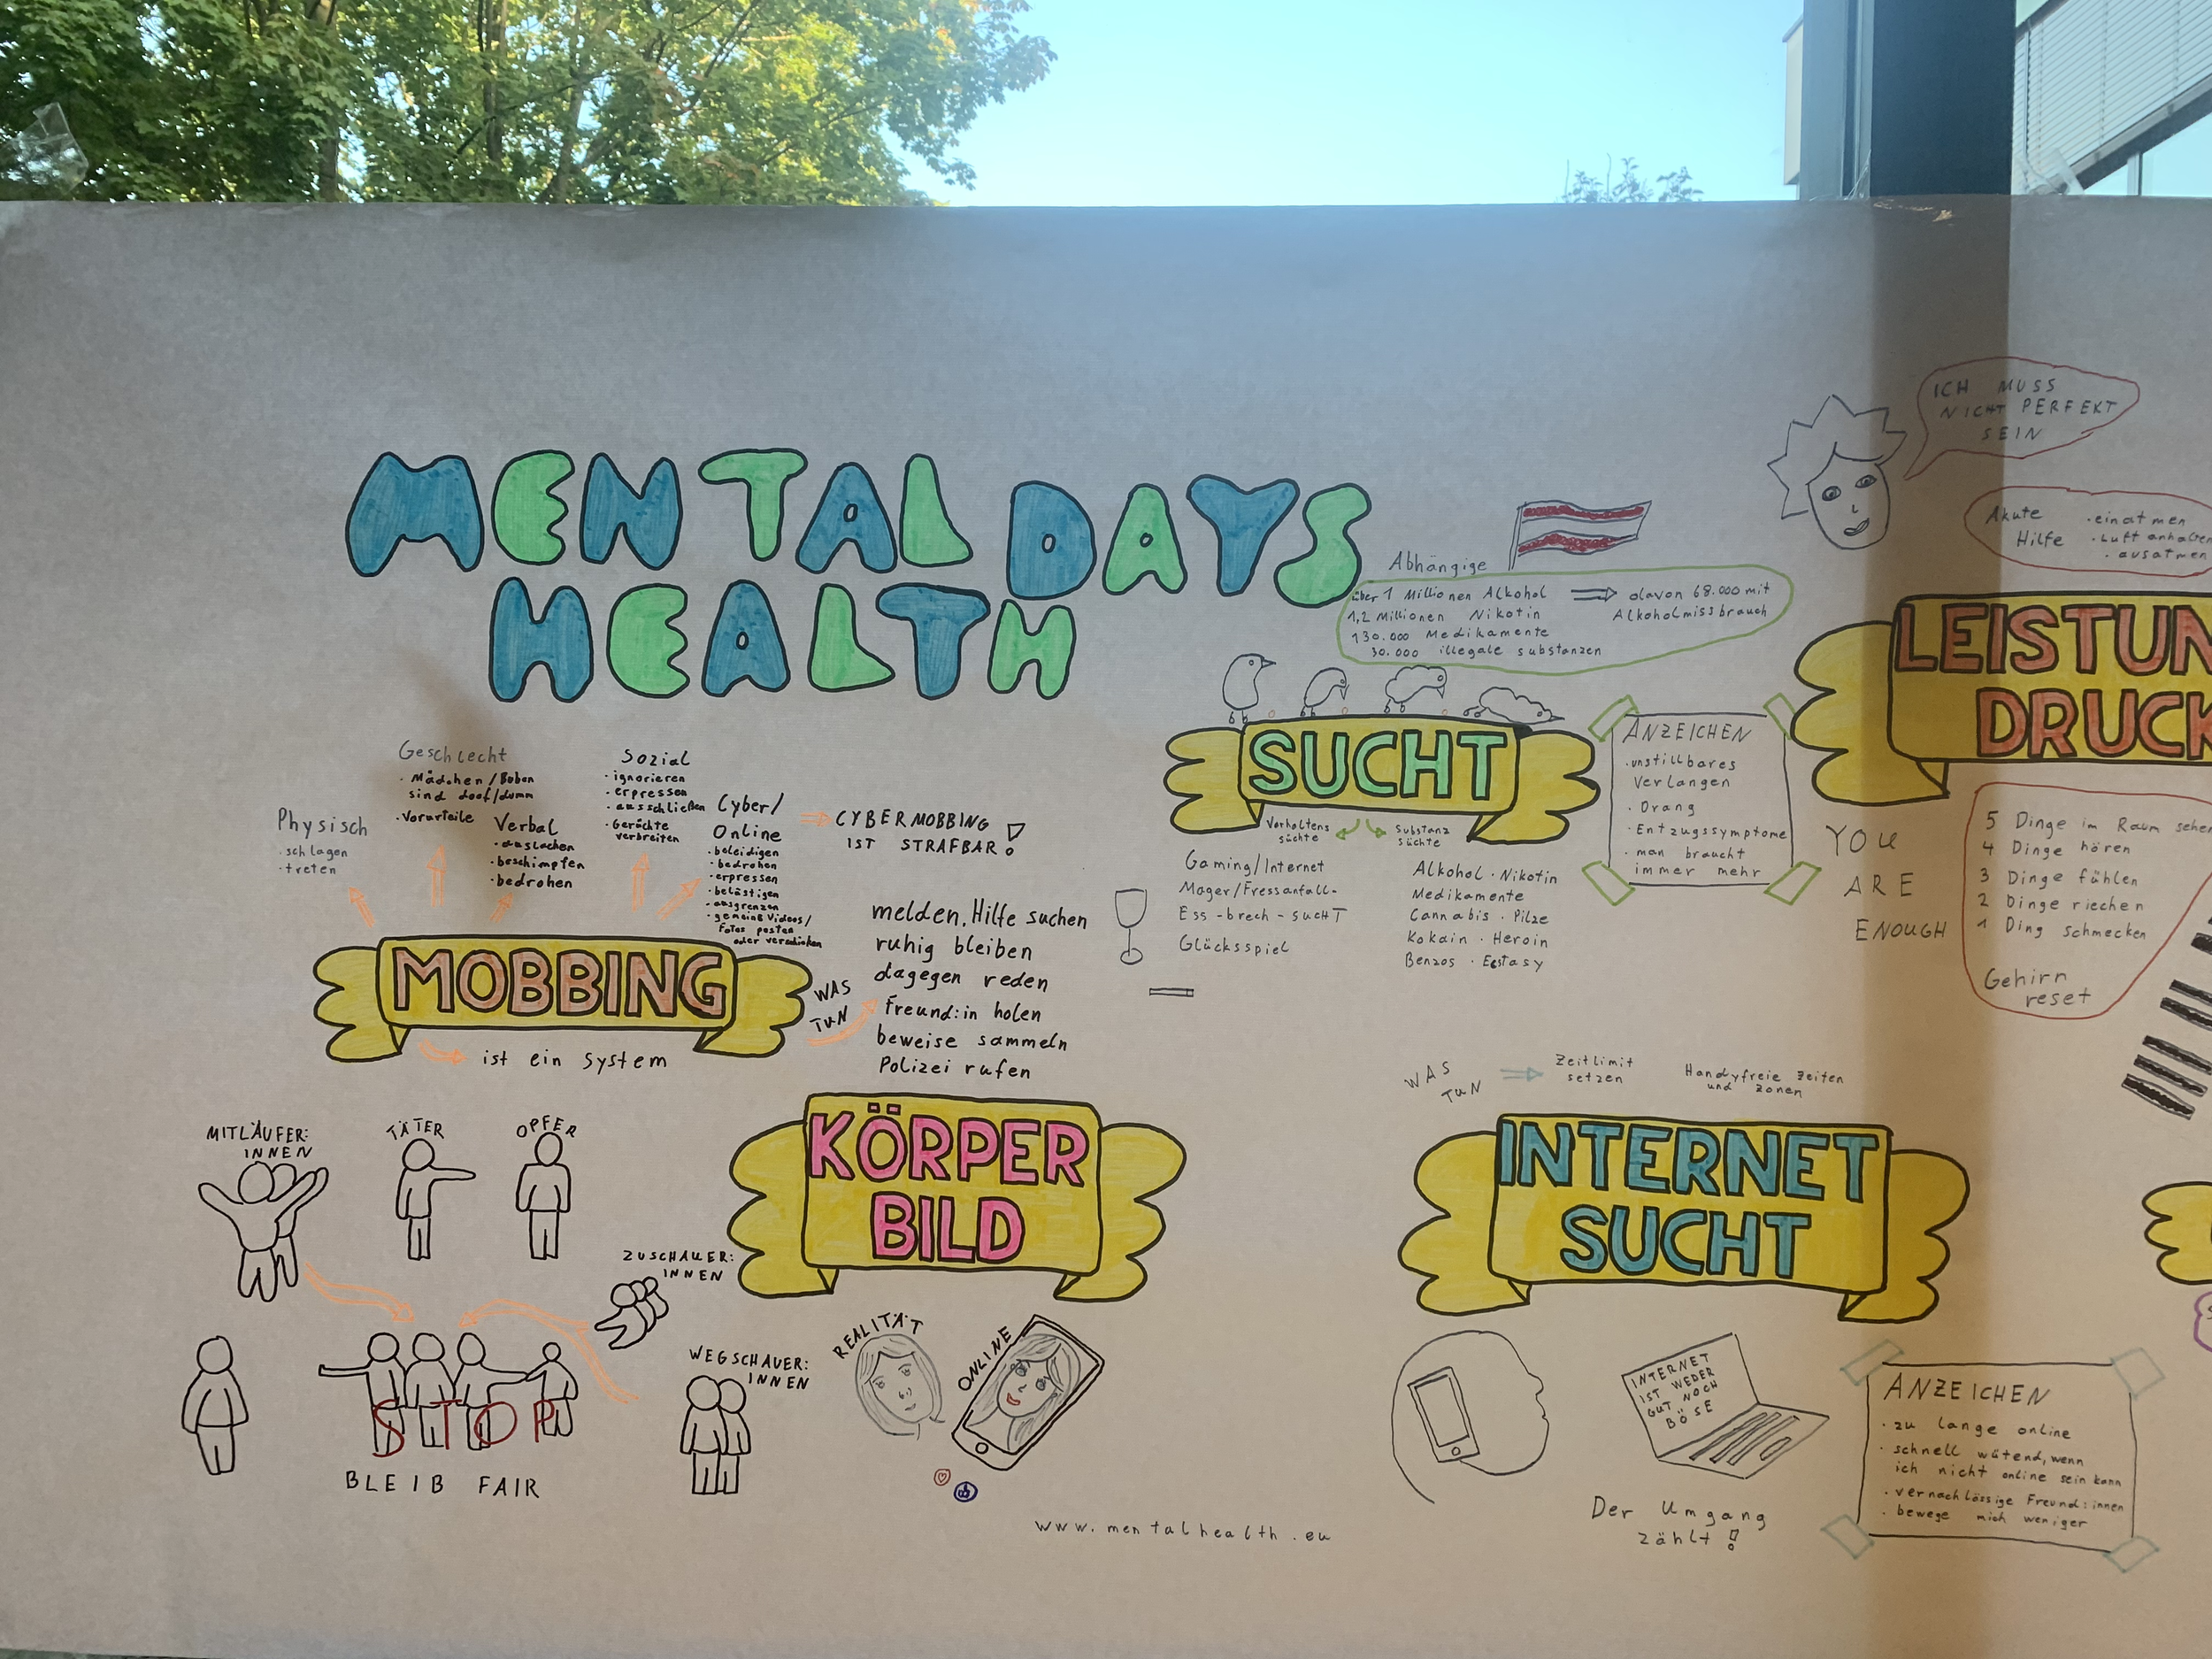 MENTAL DAYS
HEALTH
Geschlecht
· Mädchen/Buben
sind doof/dumm
· Vorurteile
Sozial
· ignorieren
· erpressen
· ausschließen
· Gerüchte
verbreiten
Physisch
· schlagen
· treten
Verbal
· auslachen
· beschimpfen
· bedrohen
Cyber/
Online
· beleidigen
· bedrohen
· erpressen
· belästigen
· ausgrenzen
· gemeine Videos/
Fotos posten
oder verschicken
CYBERMOBBING
IST STRAFBAR!
MOBBING
ist ein System
WAS
TUN
melden, Hilfe suchen
ruhig bleiben
dagegen reden
Freund:in holen
beweise sammeln
Polizei rufen
MITLÄUFER:
INNEN
TÄTER
OPFER
ZUSCHAUER:
INNEN
WEGSCHAUER:
INNEN
STOP
BLEIB FAIR
KÖRPER
BILD
REALITÄT
ONLINE
www.mentalhealth.eu
Abhängige
über 1 Millionen Alkohol
davon 68.000 mit
Alkoholmissbrauch
1,2 Millionen Nikotin
130.000 Medikamente
30.000 illegale substanzen
SUCHT
Verhaltens
süchte
Substanz
süchte
Gaming/Internet
Mager/Fressanfall-
Ess-brech-sucHT
Glücksspiel
Alkohol · Nikotin
Medikamente
Cannabis · Pilze
Kokain · Heroin
Benzos · Ecstasy
ANZEICHEN
· unstillbares
Verlangen
· Drang
· Entzugssymptome
· man braucht
immer mehr
ICH MUSS
NICHT PERFEKT
SEIN
Akute
Hilfe
· einatmen
· Luft anhalten
· ausatmen
LEISTUN
DRUCK
YOU
ARE
ENOUGH
5 Dinge im Raum sehen
4 Dinge hören
3 Dinge fühlen
2 Dinge riechen
1 Ding schmecken
Gehirn
reset
WAS
TUN
Zeitlimit
setzen
Handyfreie Zeiten
und zonen
INTERNET
SUCHT
INTERNET
IST WEDER
GUT NOCH
BÖSE
Der Umgang
zählt!
ANZEICHEN
· zu lange online
· schnell wütend, wenn
ich nicht online sein kann
· vernachlässige Freund:innen
· bewege mich weniger